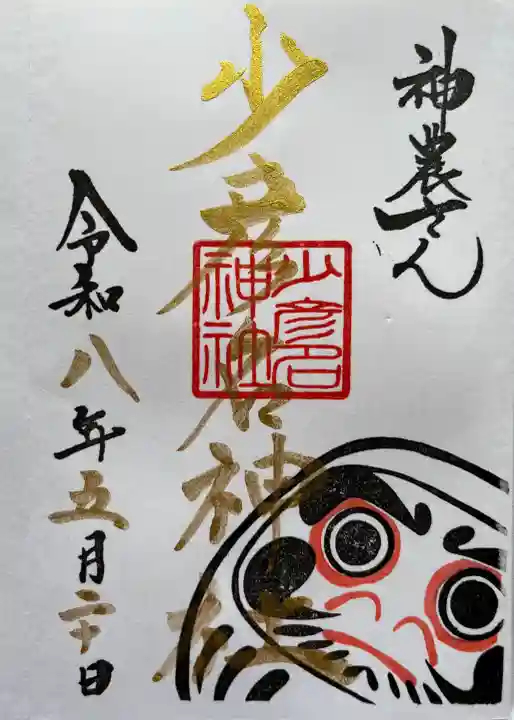 神農さん
少彦名神社
少彦名
神社
令和八年五月二十日